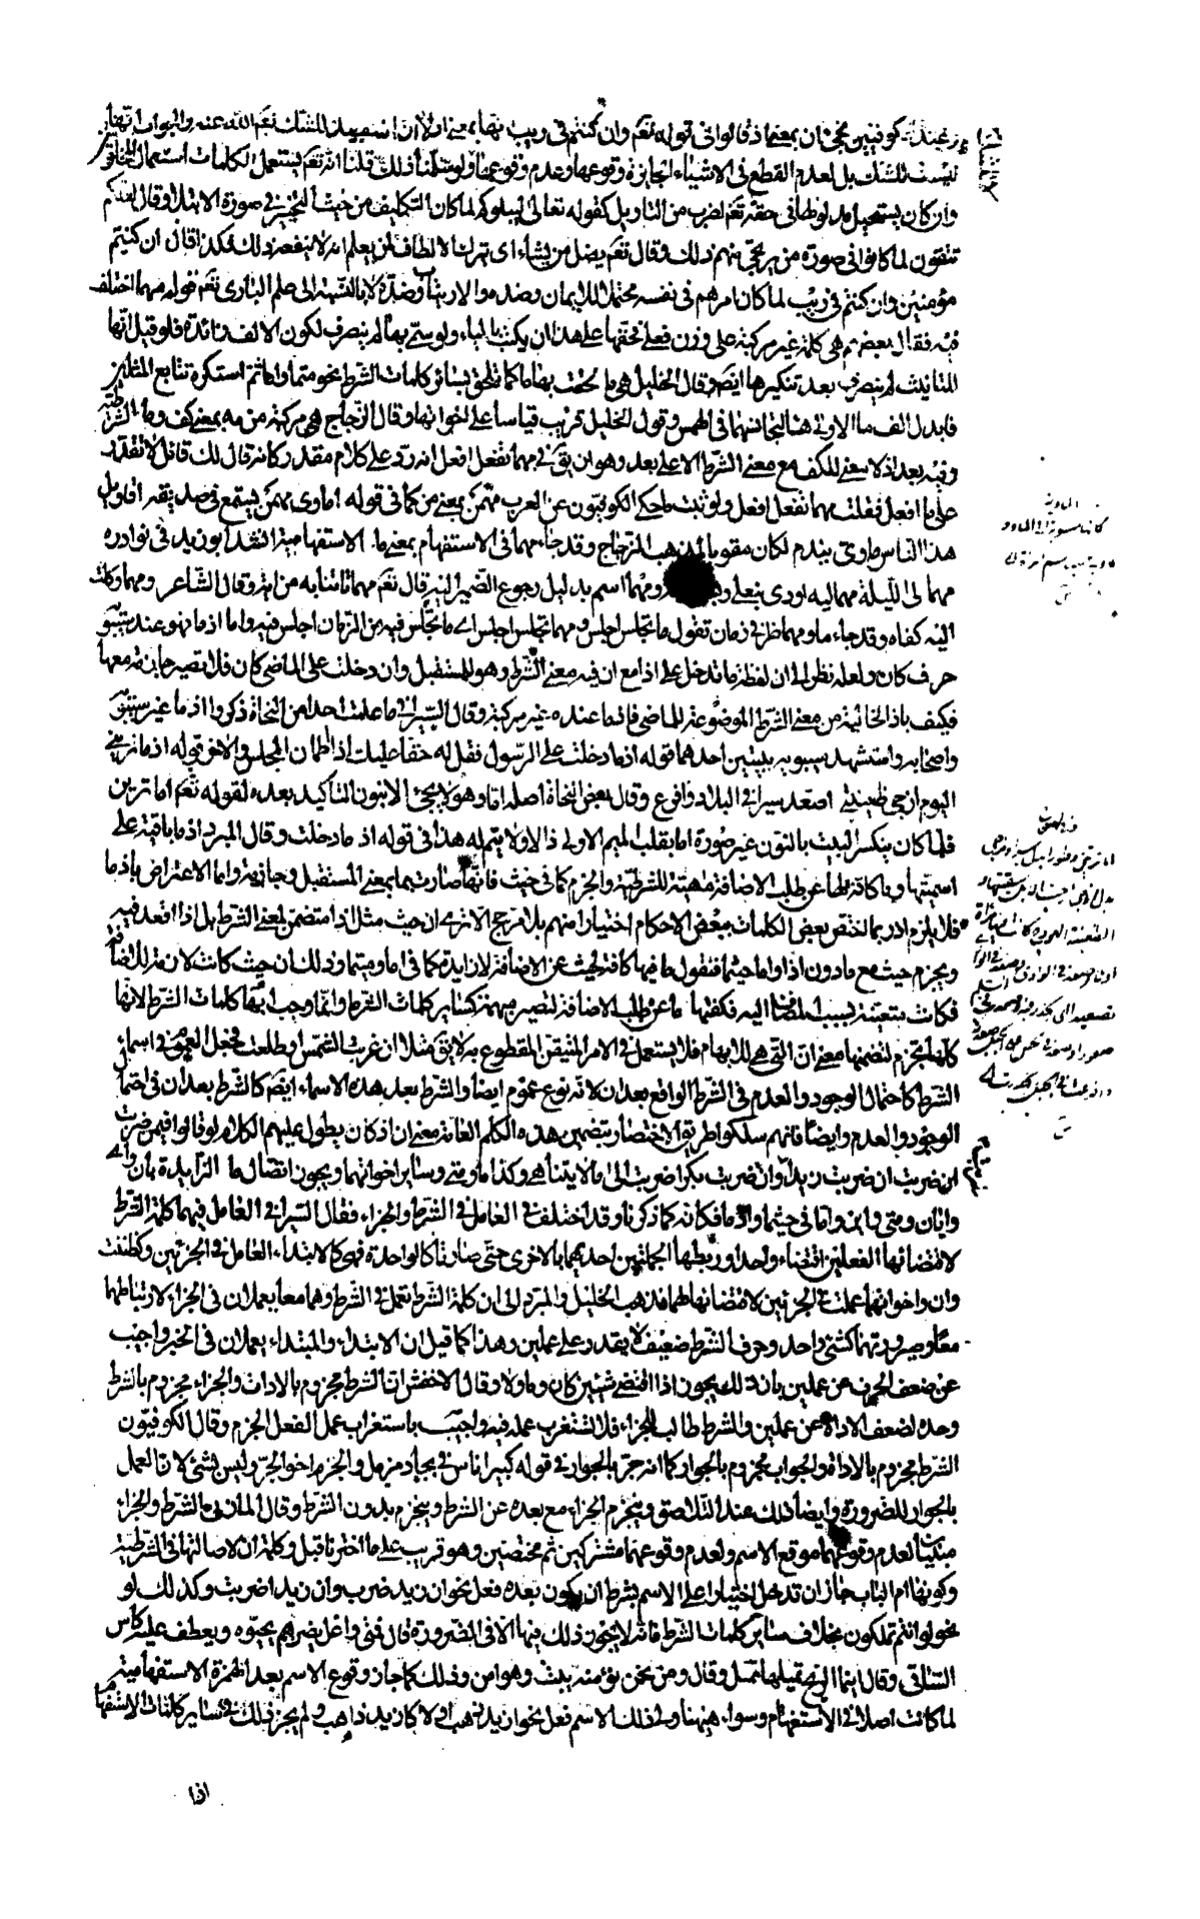 عند الكوفيين مجئ ان بمعنى اذ قالوا في قوله تعم وان كنتم في ريب انها بمعنى اذ لان ان مفيدة للشك تعم الله عنه والجواب انها
ليست للشك بل لعدم القطع في الاشياء الجائزة وقوعها وعدم وقوعها ولو سلمنا ذلك قلنا انه تعم يستعمل الكلمات استعمال المخلوقين
وان كان يستحيل مدلولها في حقه تعم لضرب من التاويل كقوله تعالى ليبلوكم لما كان التكليف من حيث التخيير في صورة الابتلاء وقال لعلكم
تتقون لما كانوا في صورة من يرجى منهم ذلك وقال تعم يضل من يشاء اى يترك الالطاف لمن يعلم انه لا ينفعه ذلك فكذا قال ان كنتم
مؤمنين وان كنتم في ريب لما كان امرهم في نفسه محتملا للايمان وضده والارتياب وضده لا بالنسبة الى علم البارى تعم قوله مهما اختلف
فيه فقال بعضهم هى كلمة غير مركبة على وزن فعلى فحقها على هذا ان يكتب بالياء ولو سمى بها لم ينصرف لكون الالف زائدة فلو قيل انها
للتانيث لم ينصرف بعد تنكيرها ايضا وقال الخليل هى ما الحقت بها ما كما تلحق بسائر كلمات الشرط نحو متى ما واما ثم استكره تتابع المثلين
فابدل الف ما الاولى هاء لتجانسهما في الهمس وقول الخليل قريب قياسا على اخواتها وقال الزجاج هى مركبة من مه بمعنى كف وما الشرطية
وفيه بعد اذ لا معنى للكف مع معنى الشرط الا على بعد وهو ان يق في مهما تفعل افعل انه رد على كلام مقدر كانه قال لك قائل لا تقدر
على ما افعل فقلت مهما تفعل افعل ولو ثبت ما حكى الكوفيون عن العرب مهمن بمعنى من كما في قوله اماوى مهمن يستمع في صديقه اقاويل
هذا الناس ماوى يندم لكان مقويا لمذهب الزجاج وقد جاء مهما في الاستفهام بمعنى ما الاستفهامية انشد ابو زيد في نوادره
مهما لى الليلة مهما ليه اودى بنعلى ومهما اسم بدليل رجوع الضمير اليه قال تعم مهما تاتنا به من اية وقال الشاعر ومهما وكلت
اليه كفاه وقد جاء ما ومهما ظرفى زمان تقول ما تجلس اجلس ومهما تجلس اجلس اى ما تجلس فيه من الزمان اجلس فيه واما اذما فهو عند سيبويه
حرف كان ولعله نظر الى ان لفظة ما تدخل على اذ مع ان فيه معنى الشرط وهو للمستقبل وان دخلت على الماضى كان فلا تصير جازمة معها
فكيف باذ الخالية من معنى الشرط الموضوعة للماضى فاذما عنده غير مركبة وقال السيرافى ما علمت احدا من النحاة ذكروا اذما غير سيبويه
واصحابه واستشهد سيبويه ببيتين احدهما قوله اذما دخلت على الرسول فقل له حقا عليك اذا اطمان المجلس والاخر قوله اذما ترينى
اليوم ازجى ظعينتى اصعد سيرا في البلاد وافرع وقال بعض النحاة اصله اما وهو لا يجئ الا بنون التاكيد بعده لقوله تعم اما ترين
فلما كان ينكسر البيت بالنون غير صورة اما بقلب الميم الاولى ذالا ولا يتم له هذا في قوله اذما دخلت وقال المبرد اذما باقية على
اسميتها وما كافة لها عن طلب الاضافة مهيئة للشرطية والجزم كما في حيث فانها صارت بما بمعنى المستقبل وجازمة واما الاعتراض باذما
فلا يلزم اذ ربما تختص بعض الكلمات ببعض الاحكام اختيارا منهم بلا مرجح الا ترى ان حيث مثل اذ متضمن لمعنى الشرط بل اذا اقعد فيه
ويجزم حيث مع ما دون اذا واما حيثما فنقول ما فيها كافة لحيث عن الاضافة لا زايدة كما في اما ومتى ما وذلك ان حيث كانت لازمة للاضافة
فكانت متعينة بسبب المضاف اليه فكفتها ما عن طلب الاضافة لتصير مبهمة كسائر كلمات الشرط وانما وجب ابهام كلمات الشرط لانها
كلها تجزم لتضمنها معنى ان التى هى للابهام فلا يستعمل في الامر المتيقن المقطوع به لا يق مثلا ان غربت الشمس او طلعت فجعل العموم في اسماء
الشرط كاحتمال الوجود والعدم في الشرط الواقع بعد ان لانه نوع عموم ايضا والشرط بعد هذه الاسماء ايضا كالشرط بعد ان في احتمال
الوجود والعدم وايضا فانهم سلكوا طريق الاختصار بتضمين هذه الكلم العامة معنى ان اذ كان يطول عليهم الكلام لو قالوا في من ضربت
ان ضربت ان ضربت زيدا وان ضربت بكرا ضربت الى ما لا يتناهى وكذا ما ومتى وسائر اخواتهما ويجوز اتصال ما الزايدة بان واى
وايان ومتى واين واما في حيثما واذما فكافة كما ذكرنا وقد اختلف في العامل في الشرط والجزاء فقال السيرافى العامل فيهما كلمة الشرط
لاقتضائها الفعلين اقتضاء واحدا وربطها الجملتين احديهما بالاخرى حتى صارتا كالواحدة فهى كالابتداء العامل في الجزئين وكظننت
وان واخواتها عملت في الجزئين لاقتضائها لهما فذهب الخليل والمبرد الى ان كلمة الشرط تعمل في الشرط وهما معا يعملان في الجزاء لارتباطهما
معا وصيرورتهما كشئ واحد وحرف الشرط ضعيف لا يقدر على عملين وهذا كما قيل ان الابتداء والمبتداء يعملان في الخبر واجيب
عن ضعف الحرف عن عملين بان ذلك يجوز اذا اقتضى شيئين كان وما ولا وقال الاخفش ان الشرط مجزوم بالادات والجزاء مجزوم بالشرط
وحده لضعف الاداة عن عملين والشرط طالب للجزاء فلا تستغرب عمله فيه واجيب باستغراب عمل الفعل الجزم وقال الكوفيون
الشرط مجزوم بالاداة والجواب مجزوم بالجوار كما انه جر بالجوار في قوله كبير اناس في بجاد مزمل والجزم اخو الجر وليس بشئ لان العمل
بالجوار للضرورة وايضا ذلك عند التلاصق وينجزم الجزاء مع بعده عن الشرط وينجزم بدون الشرط وقال المازنى الشرط والجزاء
مبنيان لعدم وقوعهما موقع الاسم ولعدم وقوعهما مشتركين ثم مختصين وهو قريب على ما اخترنا قبل وكلمة ان لاصالتها في الشرطية
وكونها ام الباب جاز ان تدخل اختيارا على الاسم بشرط ان يكون بعده فعل نحو ان زيد ضرب وان زيدا ضربت وكذلك لو
نحو لو انتم تملكون بخلاف سائر كلمات الشرط فانه لا يجوز ذلك فيها الا في الضرورة قال فمتى واغل يزرهم يحيوه ويعطف عليه كاس
الساقى وقال اينما الريح تميلها تمل وقال ومن نحن نؤمنه يبت وهو امن وذلك كما جاز وقوع الاسم بعد الهمزة الاستفهامية
لما كانت اصلا في الاستفهام وسواء هيهنا ولى ذلك الاسم فعل نحو ازيد ذهب اولا كازيد ذاهب ولم يجز ذلك في سائر كلمات الاستفهام
اذا